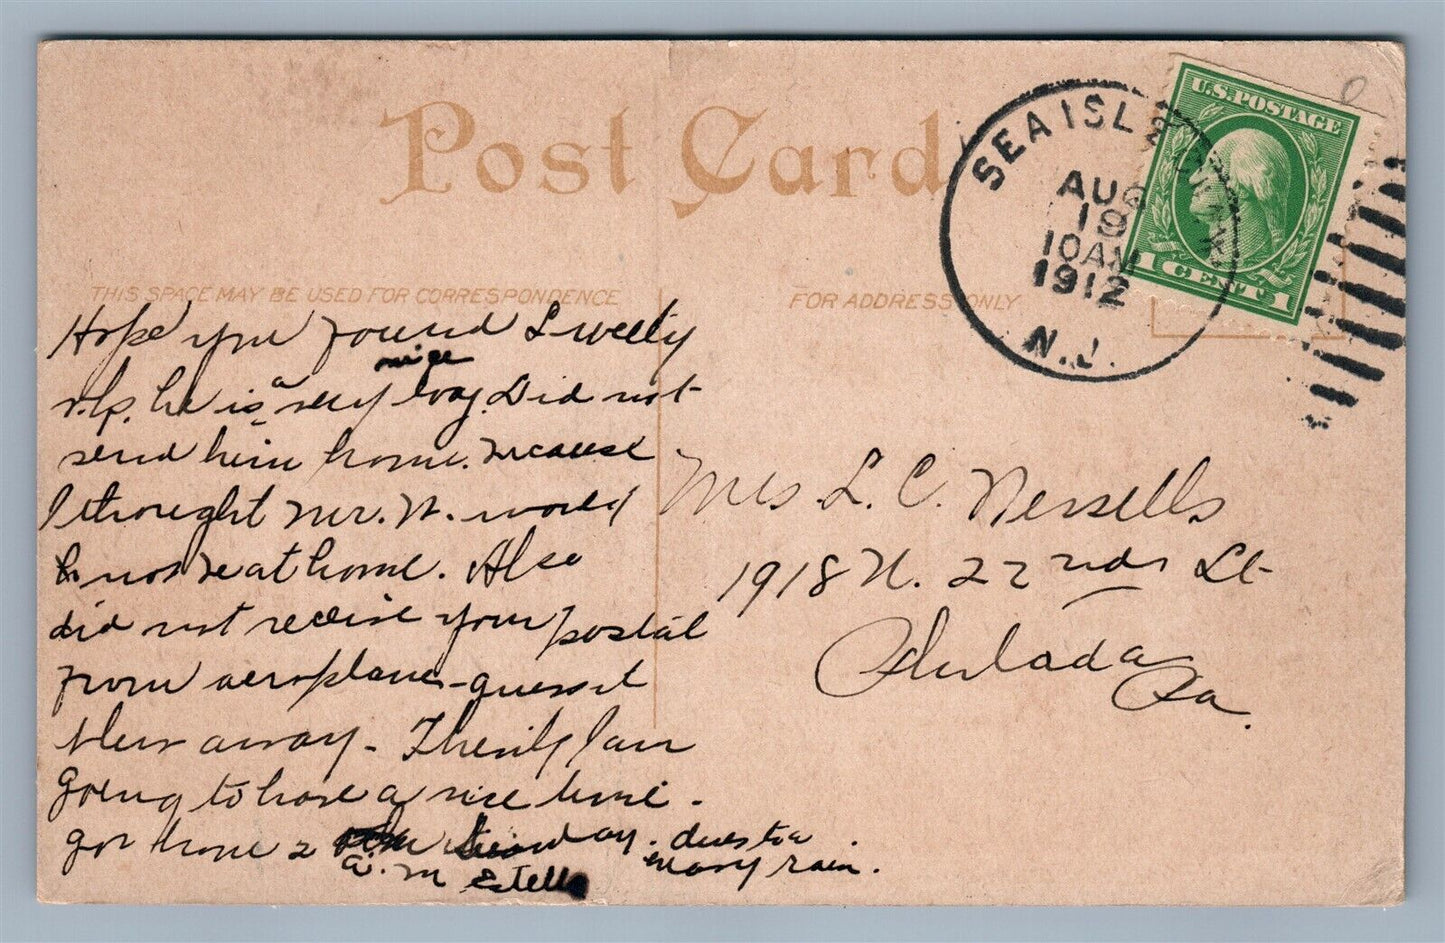 Post Card
THIS SPACE MAY BE USED FOR CORRESPONDENCE
FOR ADDRESS ONLY
SEA ISLE
AUG
19
10 AM
1912
N.J.
U.S. POSTAGE
1 CENT 1
Hope you found
he is a very nice boy. Did not
send him home. Because
I thought Mr. N. would
not be at home. Also
did not receive your postal
from aeroplane - guess it
blew away - I
going to have a nice time -
got home 2 a.m. due to a
heavy rain.
Estella
Mrs. L. C. Nessells
1918 N. 22nd St
Philada
Pa.